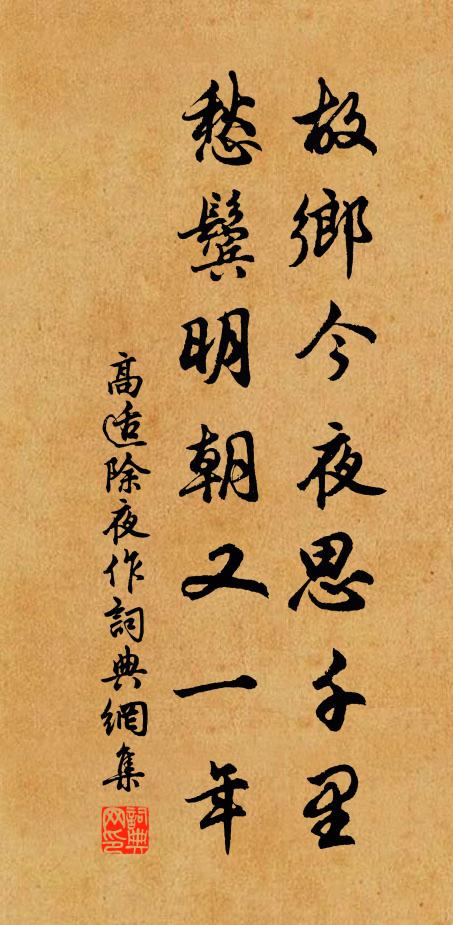 故鄉今夜思千里
愁鬢明朝又一年
高适除夜作詞典網集
詞典网印